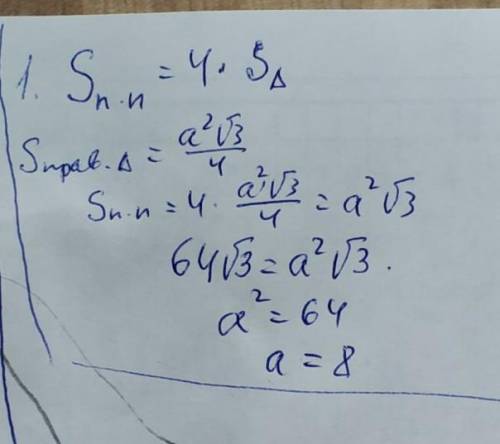 1. Sп.п = 4 · S△
Sправ.△ = a²√3/4
Sп.п = 4 · a²√3/4 = a²√3
64√3 = a²√3.
a² = 64
a = 8